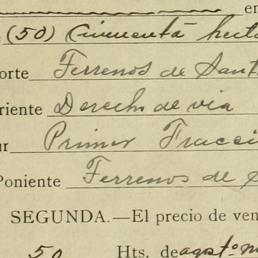 en
(50) Cincuenta hect
orte Terrenos de Sant
riente Derecho de via
ur Primer Fracci
Poniente Terrenos de S
SEGUNDA.—El precio de ven
50 Hts. de agsto